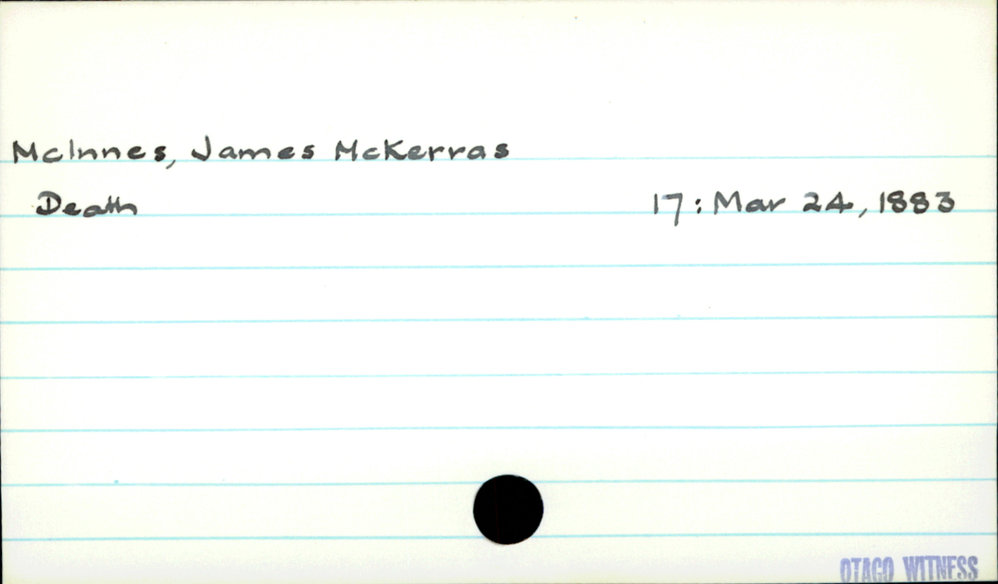 McInnes, James McKerras
Death 17: Mar 24, 1883
OTAGO WITNESS